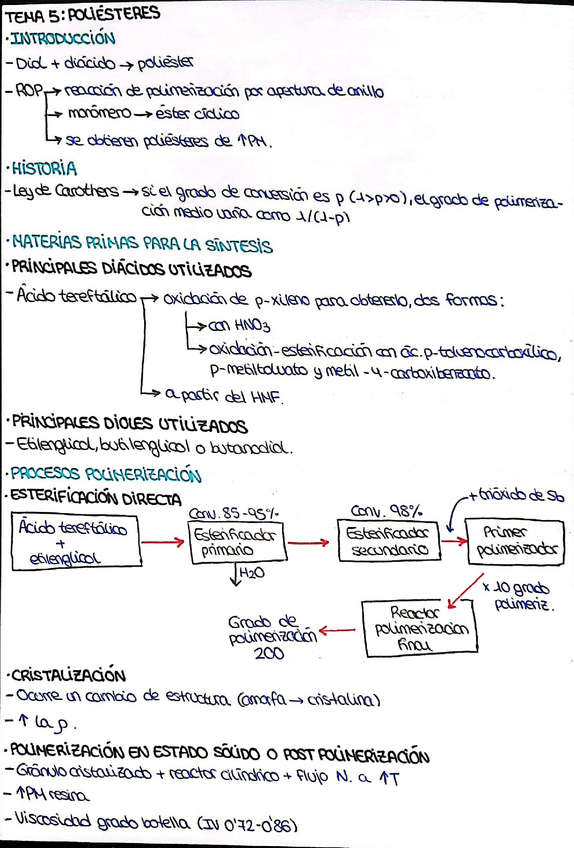 TEMA 5: POLIÉSTERES
·INTRODUCCIÓN
- Diol + diácido → poliéster
- ROP → reacción de polimerización por apertura de anillo
→ monómero → éster cíclico
→ se obtienen poliésteres de ↑PM.
·HISTORIA
- Ley de Carothers → si el grado de conversión es p (1>p>0), el grado de polimeriza-
ción medio varía como 1/(1-p)
·MATERIAS PRIMAS PARA LA SÍNTESIS
·PRINCIPALES DIÁCIDOS UTILIZADOS
- Ácido tereftálico → oxidación de p-xileno para obtenerlo, dos formas:
→ con HNO3
→ oxidación-esterificación con ác. p-toluenocarboxílico,
p-metiltoluato y metil-4-carboxibenzoato.
→ a partir del HMF.
·PRINCIPALES DIOLES UTILIZADOS
- Etilenglicol, butilenglicol o butanodiol.
·PROCESOS POLIMERIZACIÓN
·ESTERIFICACIÓN DIRECTA
Conv. 85-95%
Conv. 98%
+ trióxido de Sb
Ácido tereftálico
+
etilenglicol
Esterificador
primario
Esterificador
secundario
Primer
polimerizador
H2O
x 10 grado
polimeriz.
Reactor
polimerización
final
Grado de
polimerización
200
·CRISTALIZACIÓN
- Ocurre un cambio de estructura (amorfa → cristalina)
- ↑ la ρ.
·POLIMERIZACIÓN EN ESTADO SÓLIDO O POST POLIMERIZACIÓN
- Gránulo cristalizado + reactor cilíndrico + flujo N. a ↑T
- ↑PM resina
- Viscosidad grado botella (IV 0'72-0'86)